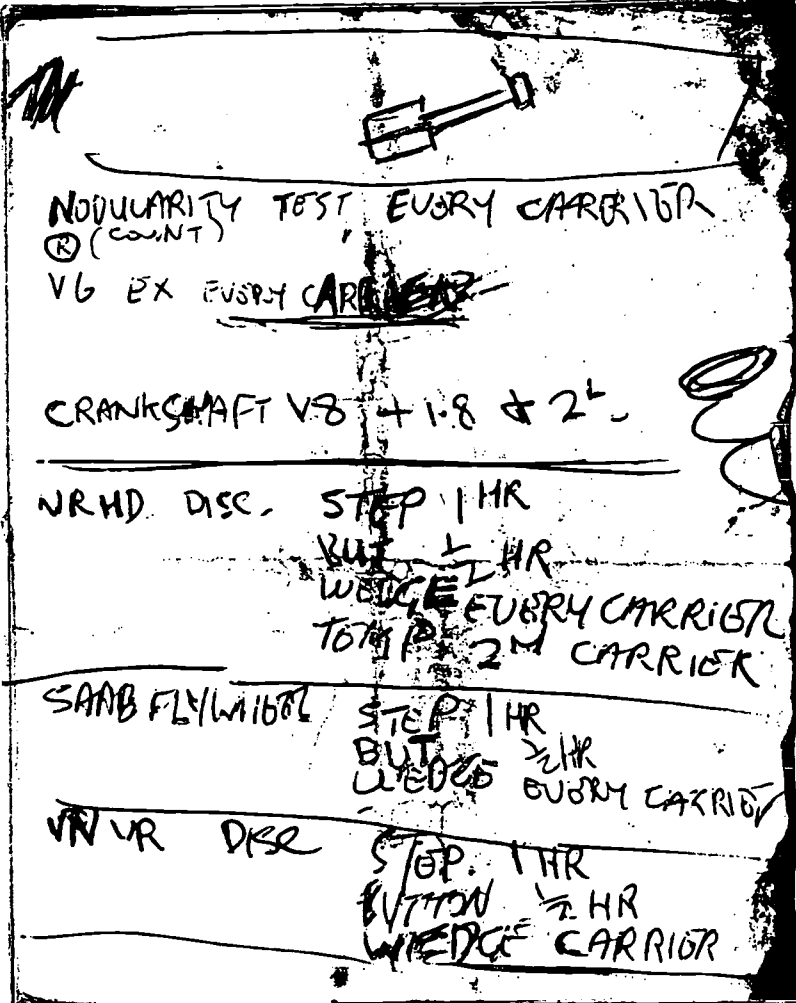 NODULARITY TEST, EVERY CARRIER
Ⓡ (COUNT)
V6 EX EVERY
CRANKSHAFT V8 + 1.8 & 2L
NRHD DISC. STEP 1 HR
BUT ½ HR
WEDGE EVERY CARRIER
TEMP 2M CARRIER
SAAB FLYWHEEL STEP 1 HR
BUT ½ HR
WEDGE EVERY CARRIER
VN VR DISC STEP. 1 HR
BUTTON ½ HR
WEDGE CARRIER